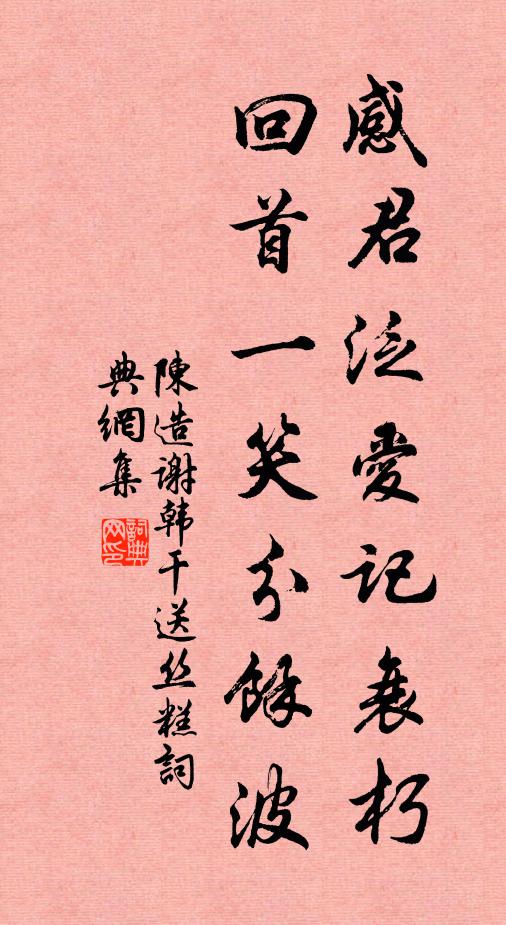 感君泛愛記衰朽
回首一笑分餘波
陳造谢韩干送丝糕詞
典網集
詞典网印